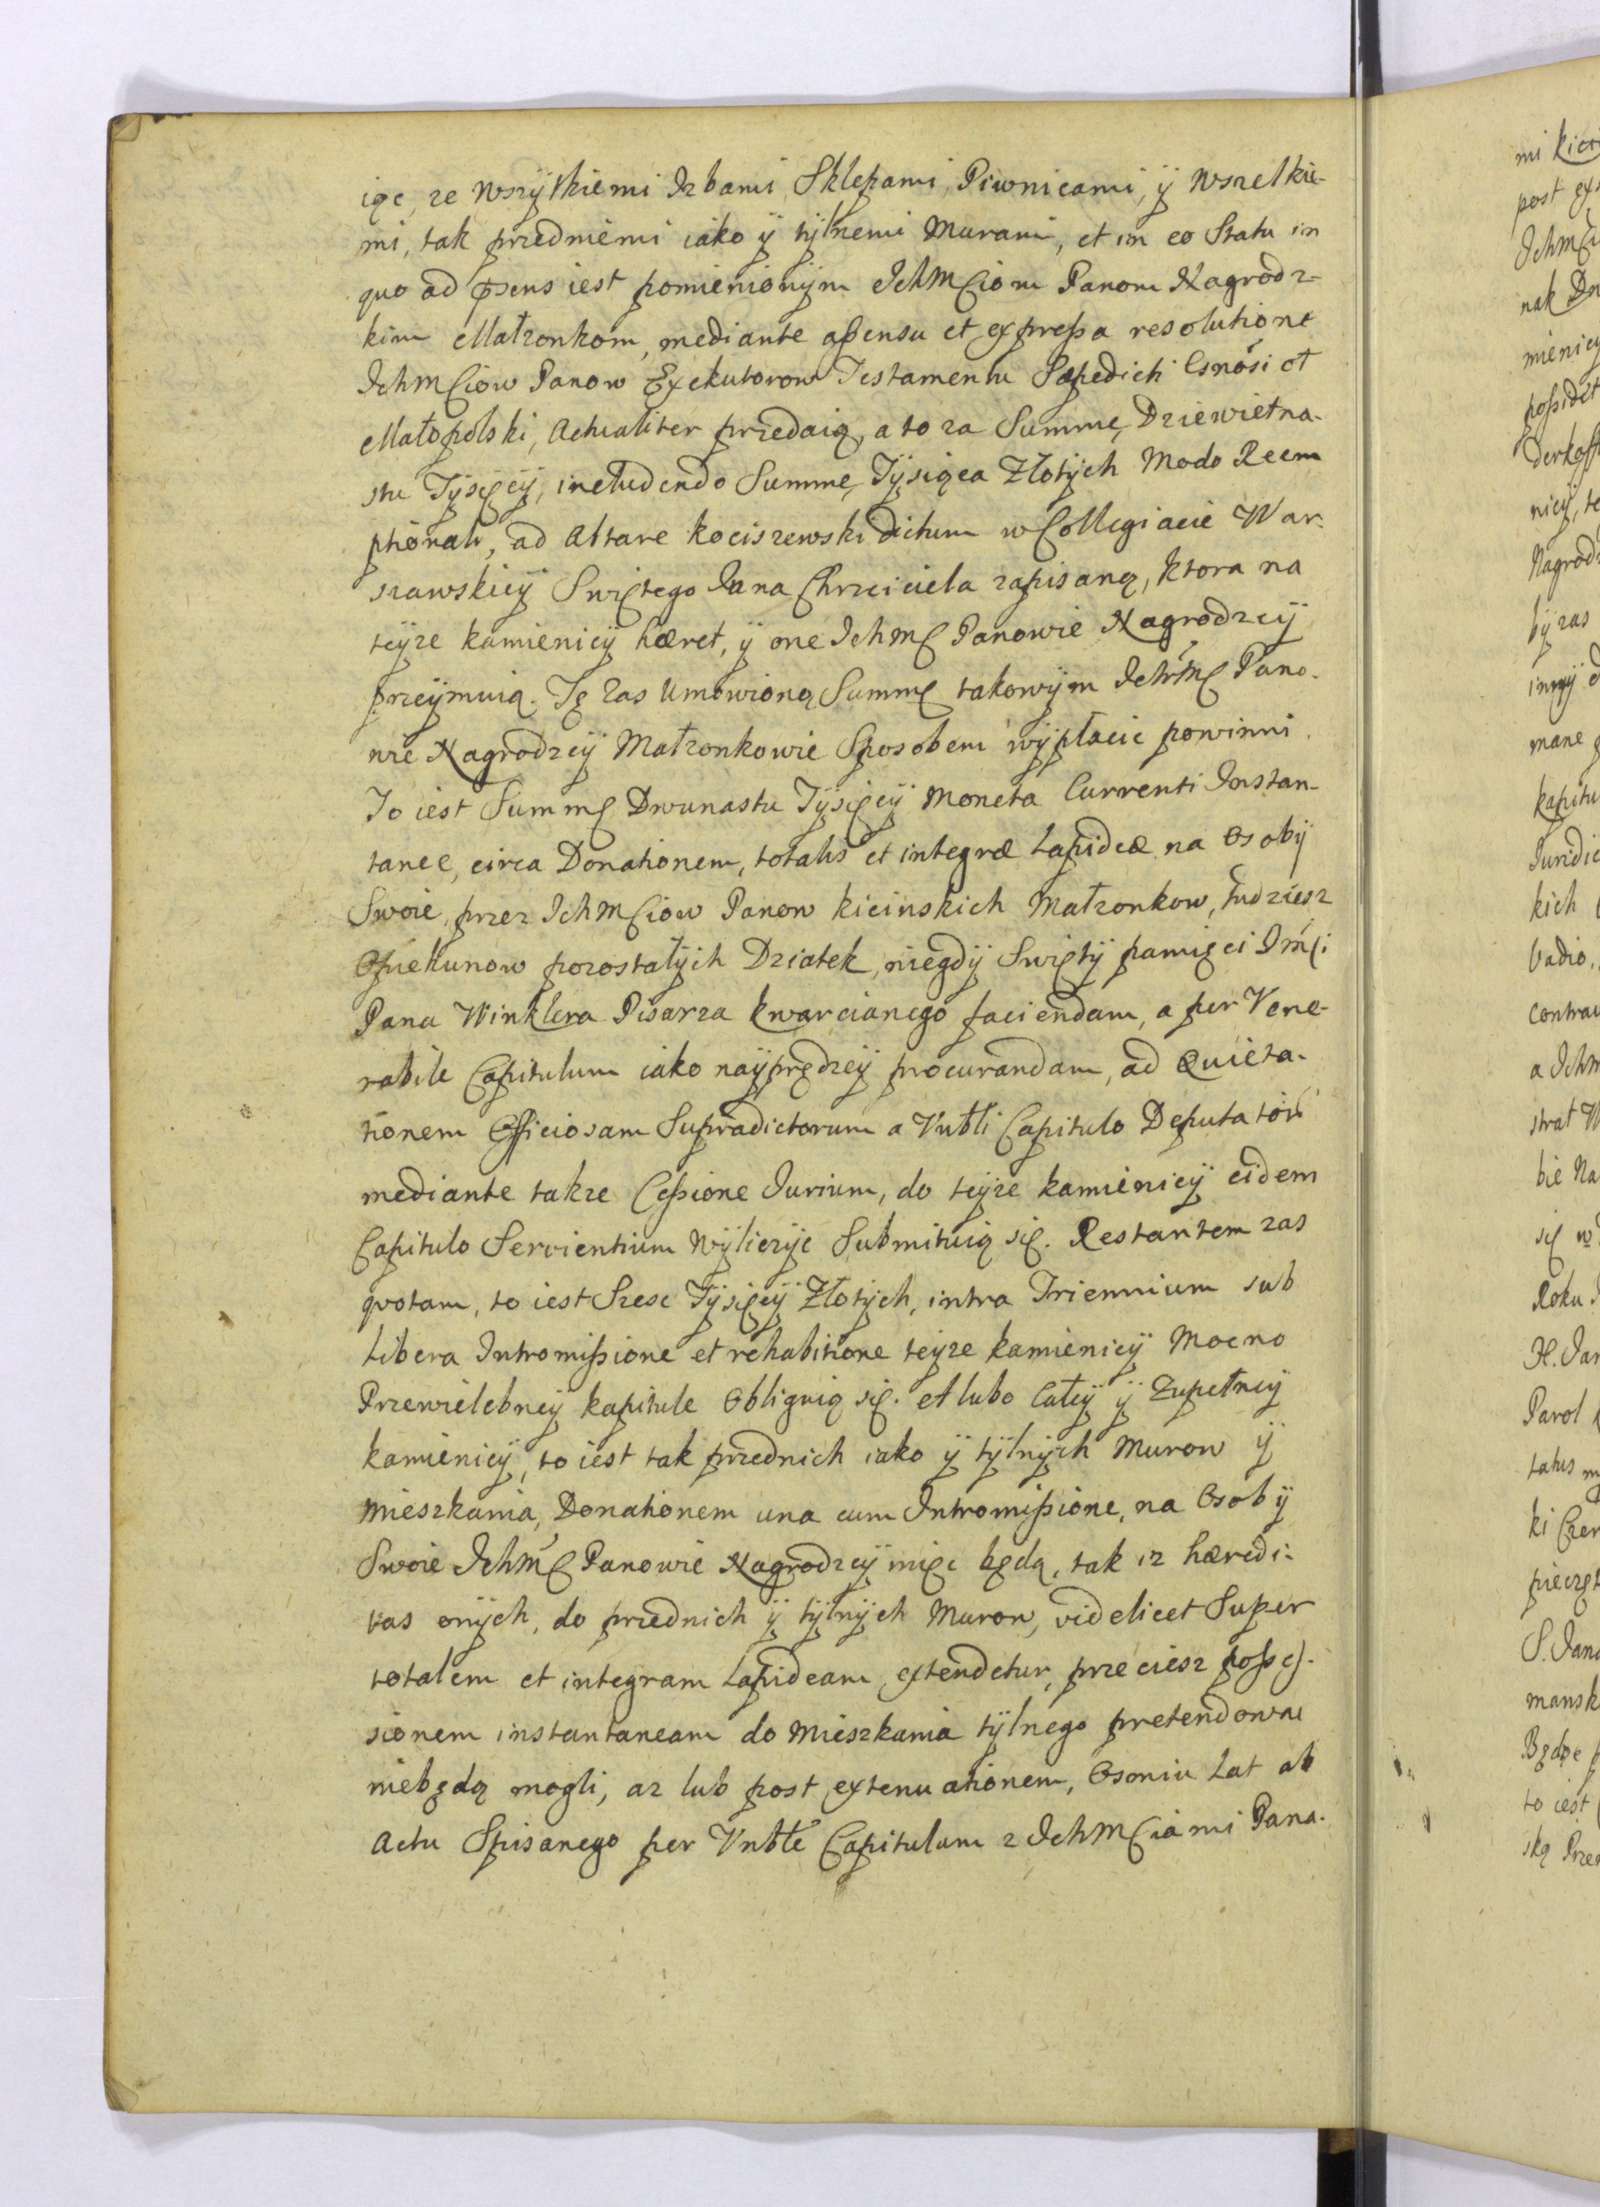 iąc, ze wszÿtkiemi Izbami Sklepami, Piwnicami, ÿ wszelkie-
mi, tak przedniemi iako ÿ tÿlnemi Murami, et in eo Statu in
quo ad psens iest pomienionÿm IchMCiom Panom Nagrodz-
kim Małzonkom, mediante assensu et expressa resolutione
IchMCiow Panow Exekutorow Testamentu Sæpedicti
Małopolski, Actualiter przedaią, a to za Summę Dziewietna-
stu Tÿsięcÿ, includendo Summę Tÿsiąca Złotÿch Modo Reem
ptionali, ad Altare Kociszewski dictum w Collegiacie War-
szawskieÿ Swiętego Jana Chrzciciela zapisaną, ktora na
teÿze kamienicÿ hæret, ÿ one IchMC Panowie Nagrodzcÿ
przeÿmuią. Tę zas Umowioną Summę takowÿm IchMC Pano-
wie Nagrodzcÿ Małzonkowie Sposobem wÿpłacic powinni.
To iest Summę Dwunastu Tÿsięcÿ Moneta Currenti Instan-
tanee, circa Donationem, totalis et integræ Lapideæ na Osobÿ
Swoie, przez IchMCiow Panow Kicinskich Małzonkow, tudziesz
Opiekunow pozostałÿch Dziatek, niegdÿ Swiętÿ pamięci ImCi
Pana Winklera Pisarza Kwarcianego faciendam, a per Vene-
rabile Capitulum iako naÿprędzeÿ procurandam, ad Quieta-
tionem Officiosam Supradictorum a Vnbli Capitulo Deputator
mediante takze Cessione Jurium, do teÿze kamienicÿ eidem
Capitulo Servientium Wÿliczÿc Submituią się. Restantem zas
quotam, to iest Szesc Tÿsięcÿ Złotÿch, intra Triennium sub
libera Intromissione et rehabitione teÿze kamienicÿ Mocno
Przewielebneÿ kapitule Obliguią się. et lubo Całeÿ ÿ Zupełneÿ
kamienicÿ, to iest tak przednich iako ÿ tÿlnÿch Murow ÿ
Mieszkania, Donationem una cum Intromissione, na Osobÿ
Swoie IchMC Panowie Nagrodzcÿ miec będą, tak iz hæredi-
tas onÿch, do przednich ÿ tÿlnÿch Murow, videlicet Super
totalem et integram Lapideam extendetur, przeciesz posses-
sionem instantaneam do Mieszkania tÿlnego pretendowac
niebędą mogli, az lub post extenuationem, Osmiu Lat ab
Actu Spisanego per Vnble Capitulum z IchMCiami Pana-
mi
post
nak